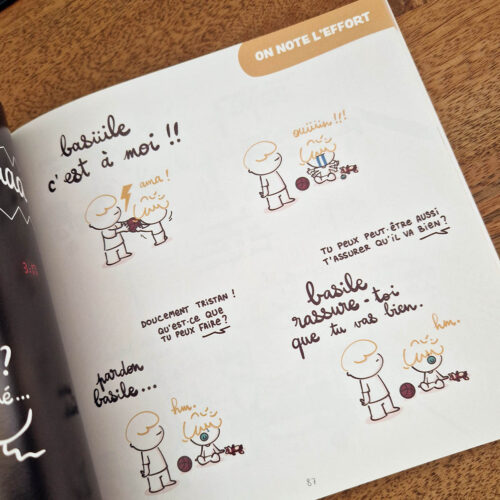 ON NOTE L'EFFORT
basiiile
c'est à moi !!
ama !
ouiiiin !!!
DOUCEMENT TRISTAN !
QU'EST-CE QUE
TU PEUX FAIRE ?
pardon
basile...
hm.
TU PEUX PEUT-ÊTRE AUSSI
T'ASSURER QU'IL VA BIEN ?
basile
rassure-toi
que tu vas bien.
hm.
87